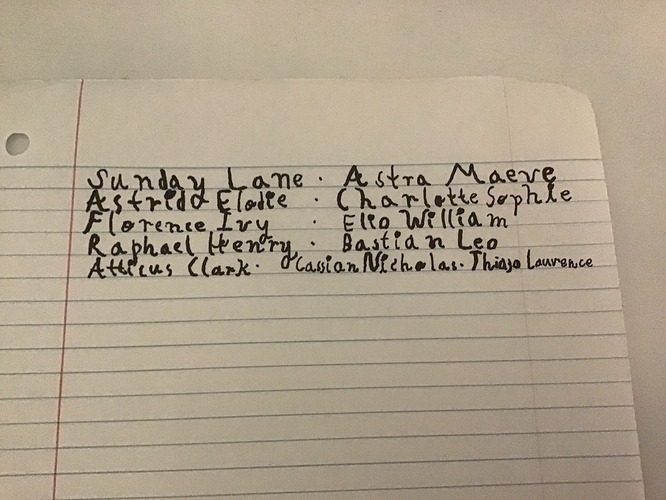 Sunday Lane · Astra Maeve
Astrid Elodie · Charlotte Sophie
Florence Ivy · Elio William
Raphael Henry · Bastian Leo
Atticus Clark · Cassian Nicholas · Thiago Laurence